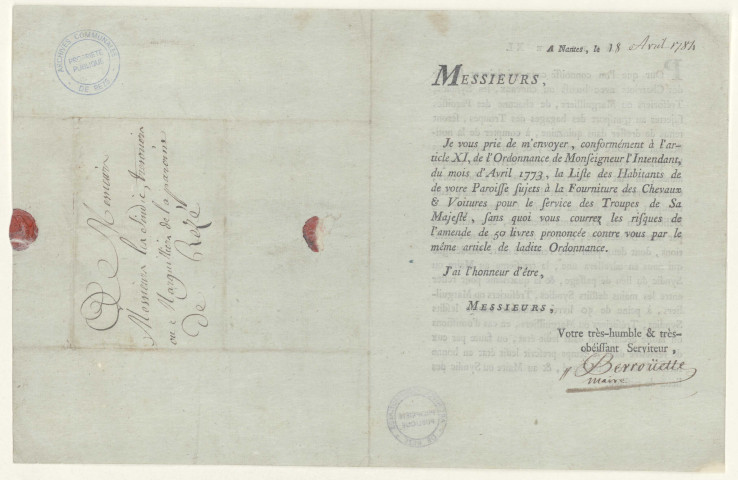 ARCHIVES COMMUNALES
PROPRIÉTÉ
PUBLIQUE
DE REZÉ
A Messieurs
Messieurs les sindic,
ou Marguilliers de la paroisse
De Rezé
A Nantes, le 18 Avril 1784
MESSIEURS,
Je vous prie de m'envoyer, conformément à l'ar-
ticle XI, de l'Ordonnance de Monseigneur l'Intendant,
du mois d'Avril 1773, la Liste des Habitants de
de votre Paroisse sujets à la Fourniture des Chevaux
& Voitures pour le service des Troupes de Sa
Majesté, sans quoi vous courrez les risques de
l'amende de 50 livres prononcée contre vous par le
même article de ladite Ordonnance.
J'ai l'honneur d'être,
MESSIEURS,
Votre très-humble & très-
obéissant Serviteur,
Berrouëtte
maire